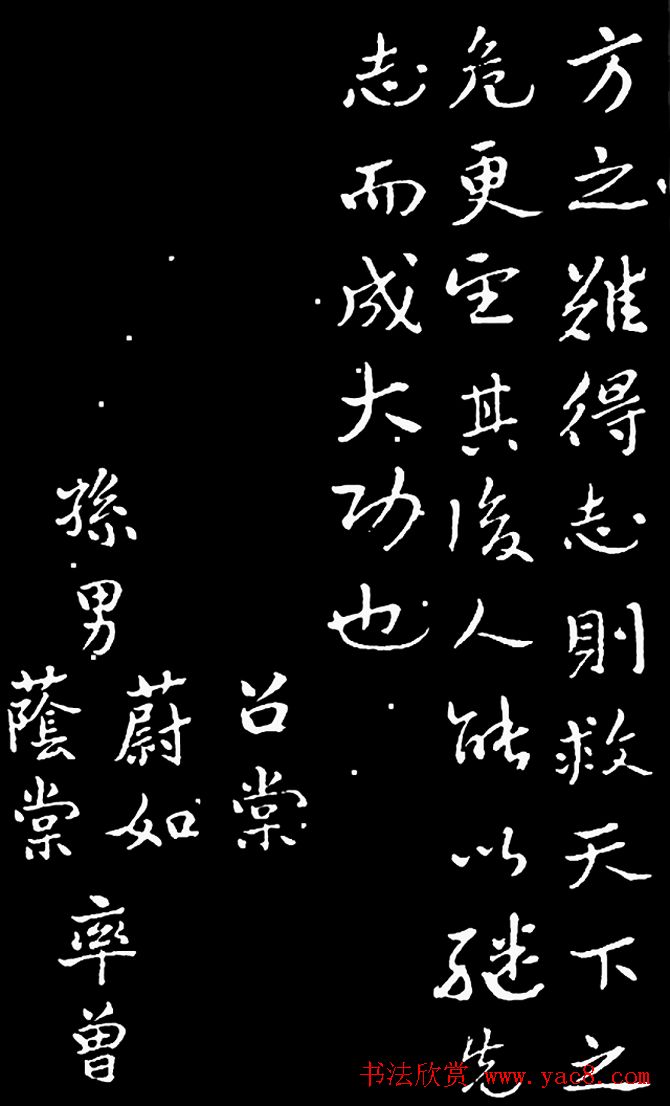 方之難得志則救天下之
危更望其後人能以繼先
志而成大功也
孫男
召棠
蔚如
蔭棠
率曾
书法欣赏 www.yac8.com